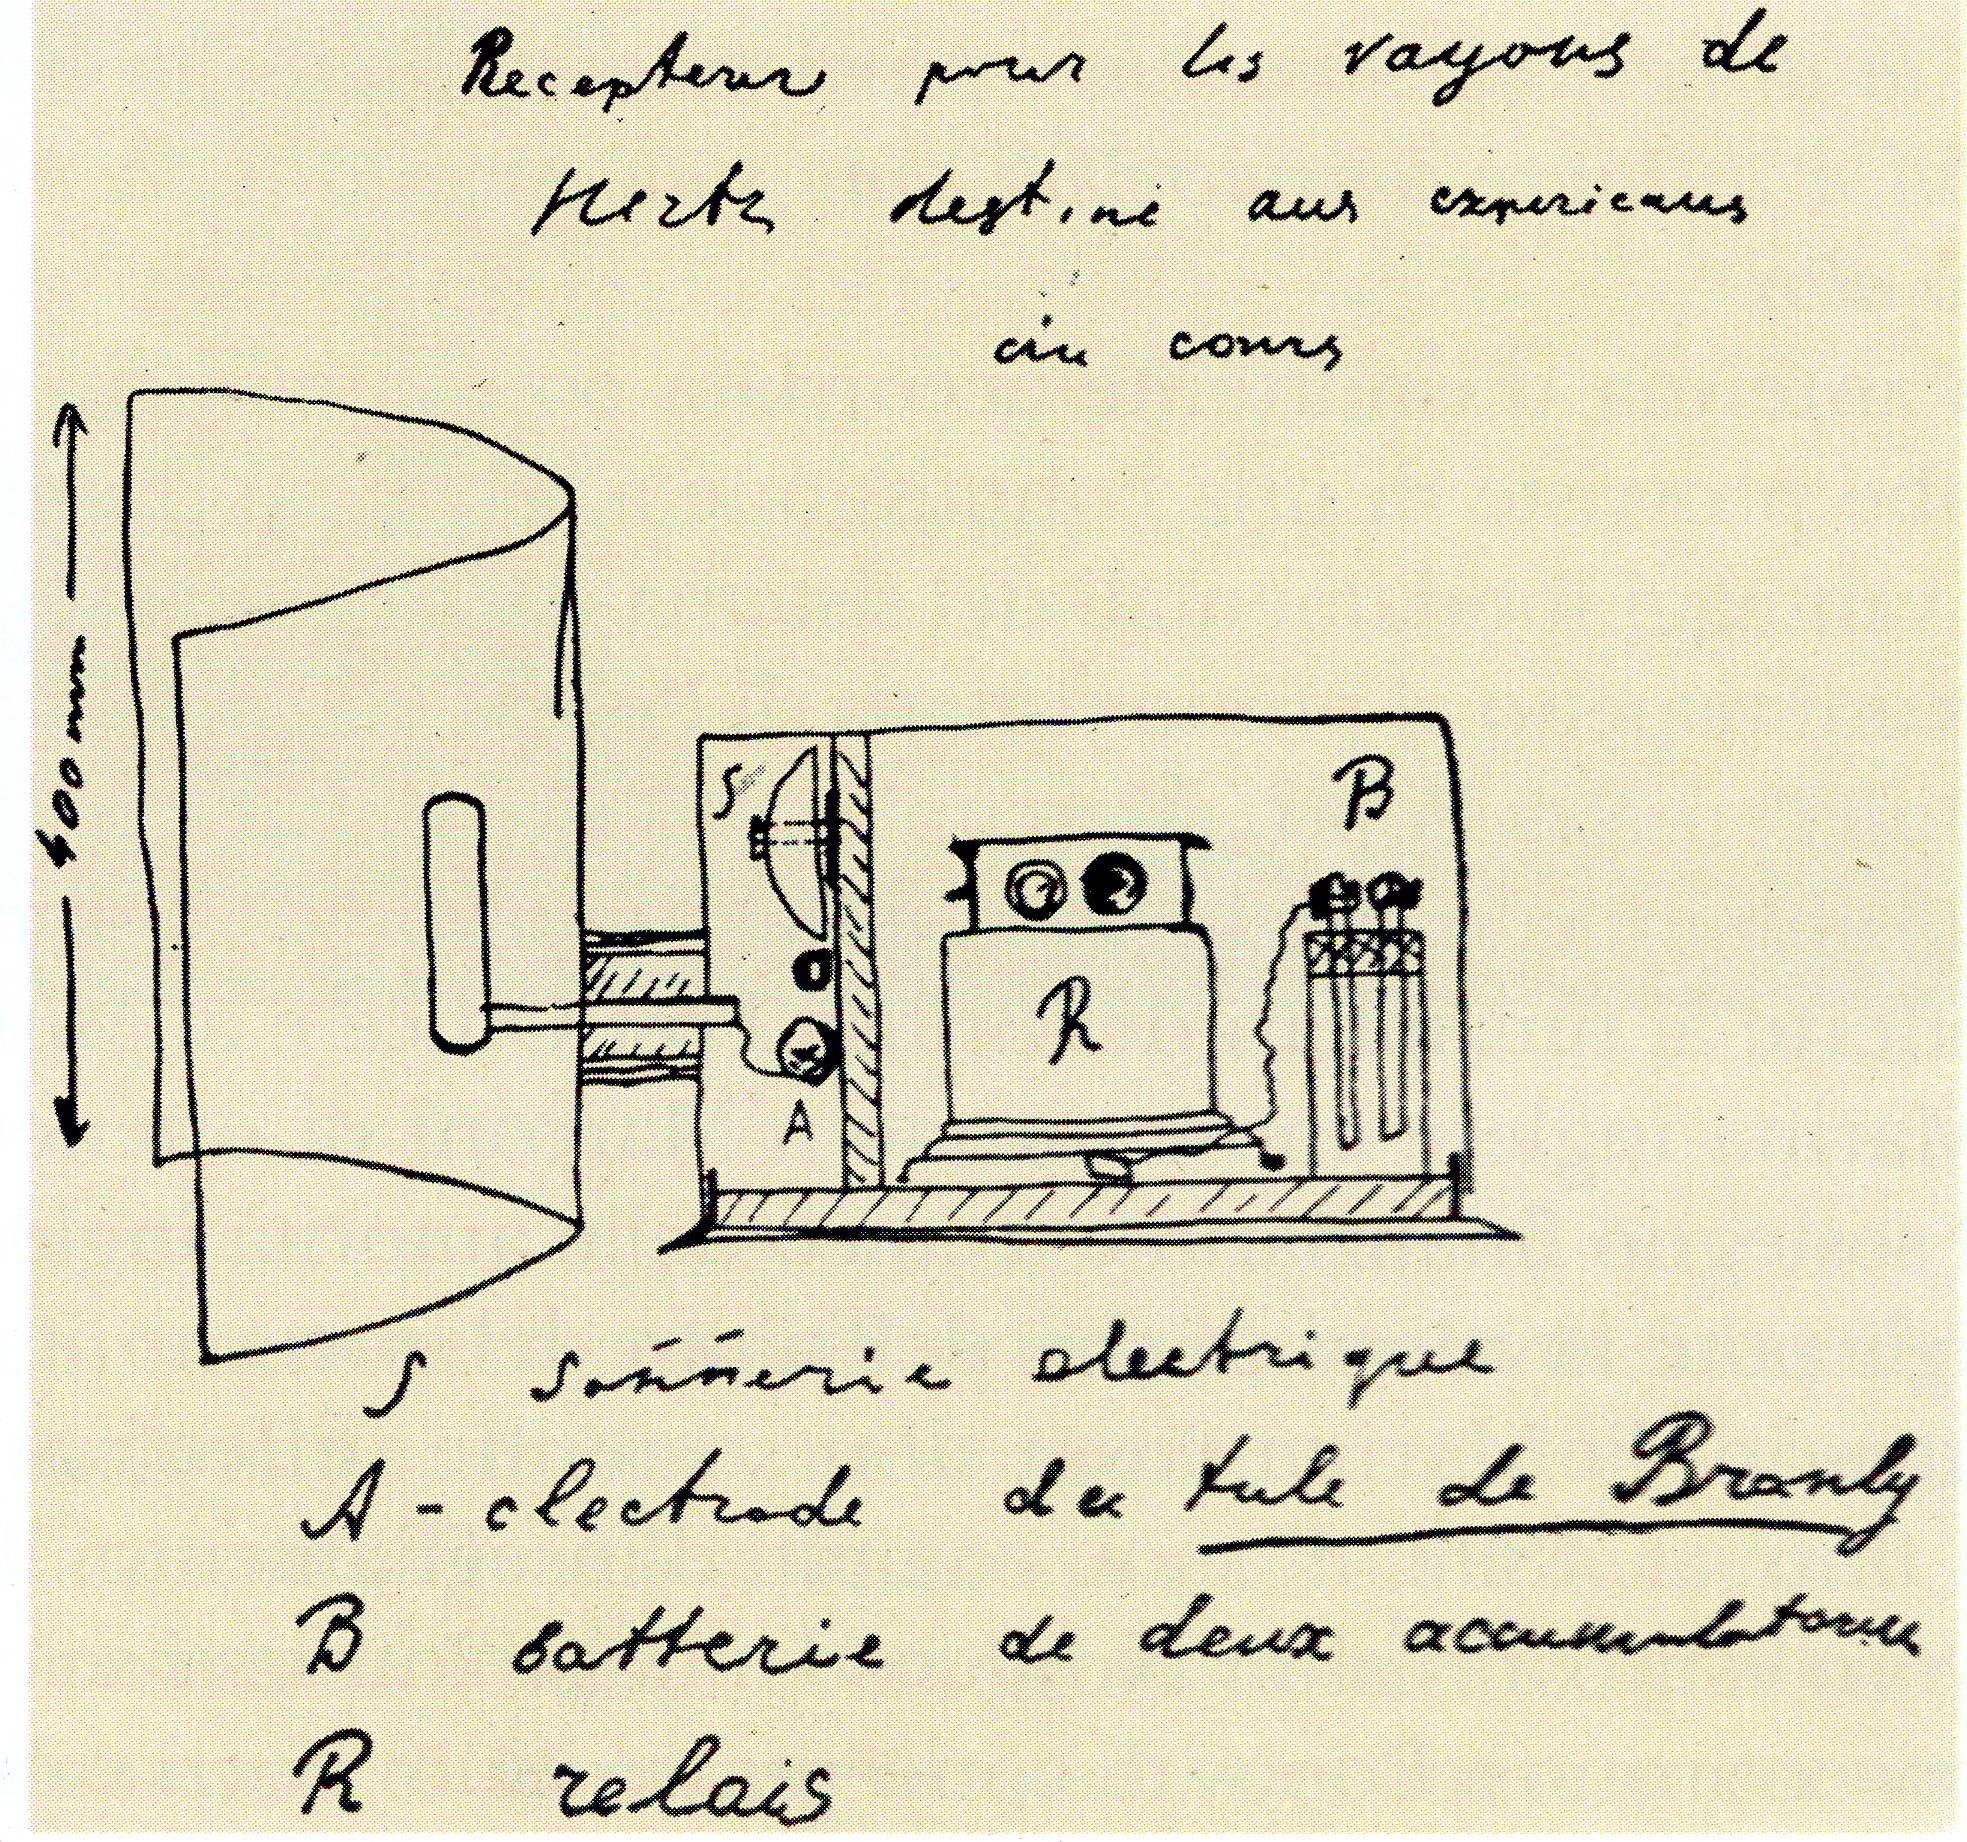 Recepteur pour les rayons de
Hertz destiné aux experiences
au cours
400 mm
S
B
R
A
S sommerie electrique
A - electrode du tube de Branly
B batterie de deux accumulateurs
R relais